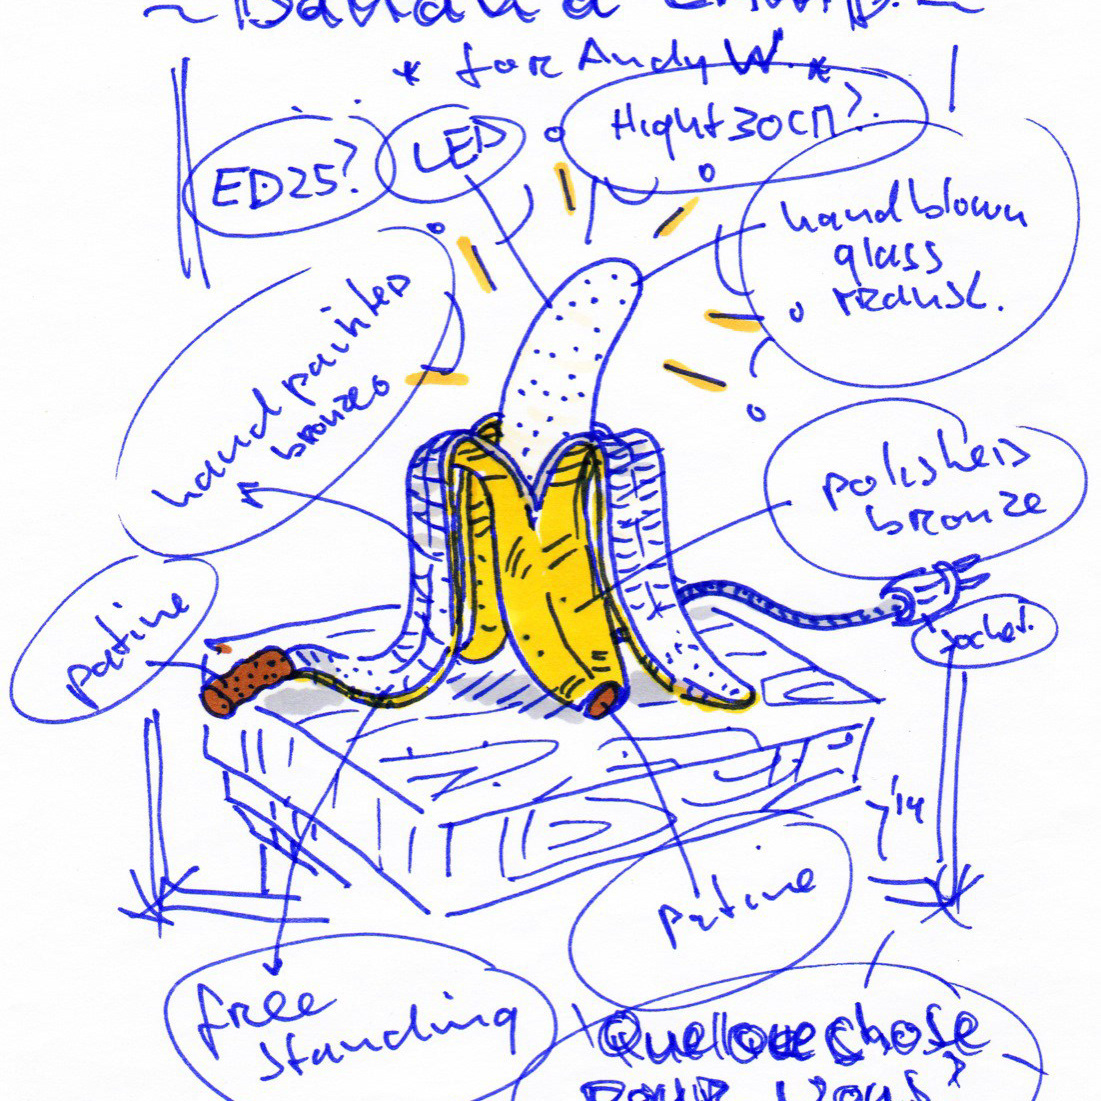 ~ Banana Lamp. ~
* for Andy W. *
ED25?
LED
Hight 30cm?
hand blown
glass
hand painted
bronze
polished
bronze
patine
socket.
'14
patine
free
standing
Quelque chose
pour vous?